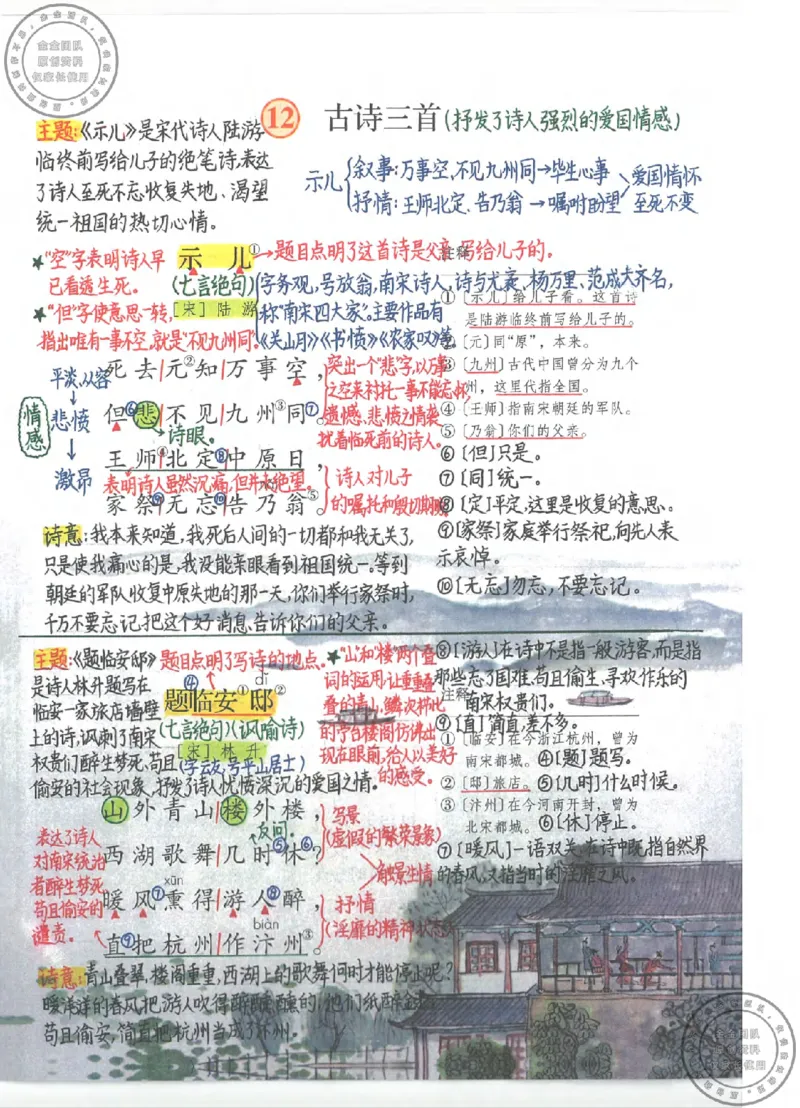 金金团队
原创资料
仅家长使用
12 古诗三首(抒发了诗人强烈的爱国情感)
主题:《示儿》是宋代诗人陆游
临终前写给儿子的绝笔诗,表达
了诗人至死不忘收复失地、渴望
统一祖国的热切心情。
示儿
叙事:万事空,不见九州同→毕生心事
抒情:王师北定、告乃翁→嘱咐盼望
爱国情怀
至死不变
★"空"字表明诗人早
已看透生死。
★"但"字使意思一转,
指出唯有一事不空,就是"不见九州同"。
示儿①→题目点明了这首诗是父亲写给儿子的。
(七言绝句)
[宋] 陆游
字务观,号放翁,南宋诗人,诗与尤袤、杨万里、范成大齐名,
称"南宋四大家"。主要作品有
《关山月》《书愤》《农家叹》等。
死去|元②知|万事空,
但⑥悲|不见|九州③同⑦。
诗眼。
王师④|北定⑧|中原日,
表明诗人虽然沉痛,但并未绝望。
家祭⑨|无忘⑩|告乃翁⑤。
情感
平淡、从容
↓
悲愤
↓
激昂
突出一个"悲"字,以万事
之空来衬托一事不能忘怀,
遗憾、悲愤之情萦
扰着临死前的诗人。
诗人对儿子
的嘱托和殷切期盼
注释
①〔示儿〕给儿子看。这首诗
是陆游临终前写给儿子的。
②〔元〕同"原",本来。
③〔九州〕古代中国曾分为九个
州,这里代指全国。
④〔王师〕指南宋朝廷的军队。
⑤〔乃翁〕你们的父亲。
⑥[但]只是。
⑦[同]统一。
⑧[定]平定,这里是收复的意思。
⑨[家祭]家庭举行祭祀,向先人表
示哀悼。
⑩[无忘]勿忘,不要忘记。
诗意:我本来知道,我死后人间的一切都和我无关了,
只是使我痛心的是,我没能亲眼看到祖国统一。等到
朝廷的军队收复中原失地的那一天,你们举行家祭时,
千万不要忘记把这个好消息告诉你们的父亲。
主题:《题临安邸》
是诗人林升题写在
临安一家旅店墙壁
上的诗,讽刺了南宋
权贵们醉生梦死、苟且
偷安的社会现象,抒发了诗人忧愤深沉的爱国之情。
题目点明了写诗的地点。
④ dǐ
题临安①邸②
(七言绝句)(讽喻诗)
[宋] 林升
(字云友,号平山居士)
★"山"和"楼"两个叠
词的运用,让重重叠
叠的青山,鳞次栉比
的亭台楼阁仿佛出
现在眼前,给人以美好
的感受。
山外青山|楼外楼,
反问。
西湖歌舞|几时⑤休⑥?
xūn
暖风⑦熏得|游人⑧醉,
biàn
直⑨把杭州|作汴州③。
表达了诗人
对南宋统治
者醉生梦死
苟且偷安的
谴责。
写景
(虚假的繁荣景象)
触景生情
抒情
(淫靡的精神状态)
⑧[游人]在诗中不是指一般游客,而是指
那些忘了国难、苟且偷生、寻欢作乐的
南宋权贵们。
⑨[直]简直,差不多。
注释
①〔临安〕在今浙江杭州,曾为
南宋都城。④[题]题写。
②〔邸〕旅店。⑤[几时]什么时候。
③〔汴州〕在今河南开封,曾为
北宋都城。⑥[休]停止。
⑦[暖风]一语双关,在诗中既指自然界
的春风,又指当时的淫靡之风。
诗意:青山叠翠,楼阁重重,西湖上的歌舞何时才能停止呢?
暖洋洋的春风把游人吹得醉醺醺的,他们纸醉金迷、
苟且偷安,简直把杭州当成了汴州。
金金团队
原创资料